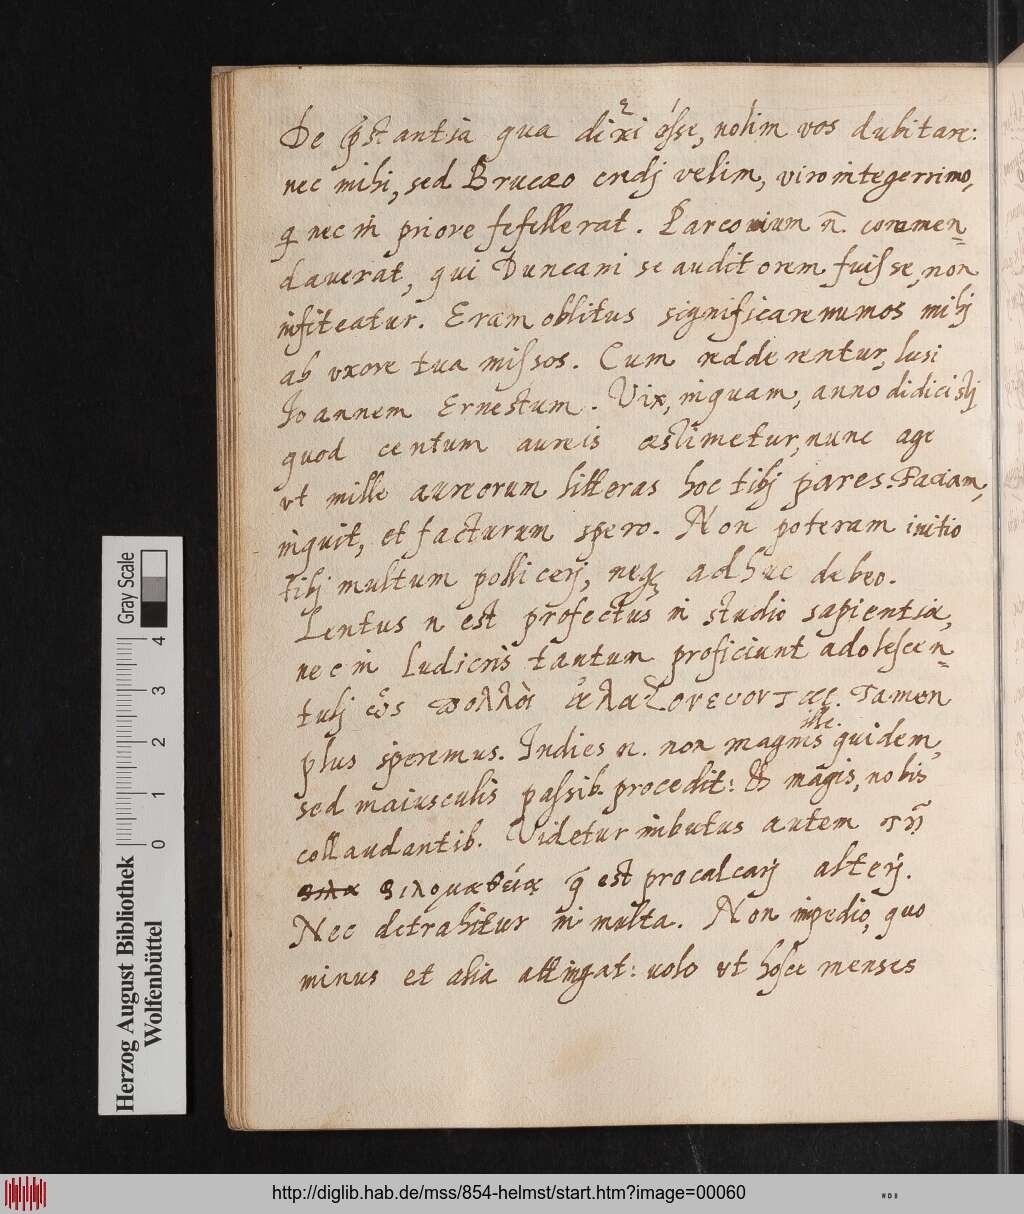 De p̃stantia qua dixi esse, nolim vos dubitare:
nec mihi, sed Brucæo credj velim, viro integerrimo,
q nec in priore fefellerat. Parcouium n̄. commen=
daverat, qui Duncani se auditorem fuisse, non
infiteatur. Eram oblitus significare numos mihj
ab vxore tua missos. Cum redderentur, lusi
Joannem Ernestum. Vix, inquam, anno didicistj
quod centum aureis æstimetur, nunc age
vt mille aureorum litteras hoc tibj pares. Faciam,
inquit, et facturum spero. Non poteram initio
tibj multum pollicerj, neq adhuc debeo.
Lentus n est profectus in studio sapientiæ,
nec in ludicris tantum proficiunt adolescen=
tulj ὡς πολλοὶ ἀλαζονεύονται. Tamen
plus speremus. Indies n. non magnis ille quidem,
sed maiusculis passib. procedit: & magis, nobis
collaudantib. Videtur imbutus autem τῇ
φιλομαθείᾳ q̃ est pro calcarj alterj.
Nec detrahitur in multa. Non impedio, quo
minus et alia attingat: uolo vt hosce menses
Herzog August Bibliothek
Wolfenbüttel
0 1 2 3 4
Gray Scale
http://diglib.hab.de/mss/854-helmst/start.htm?image=00060